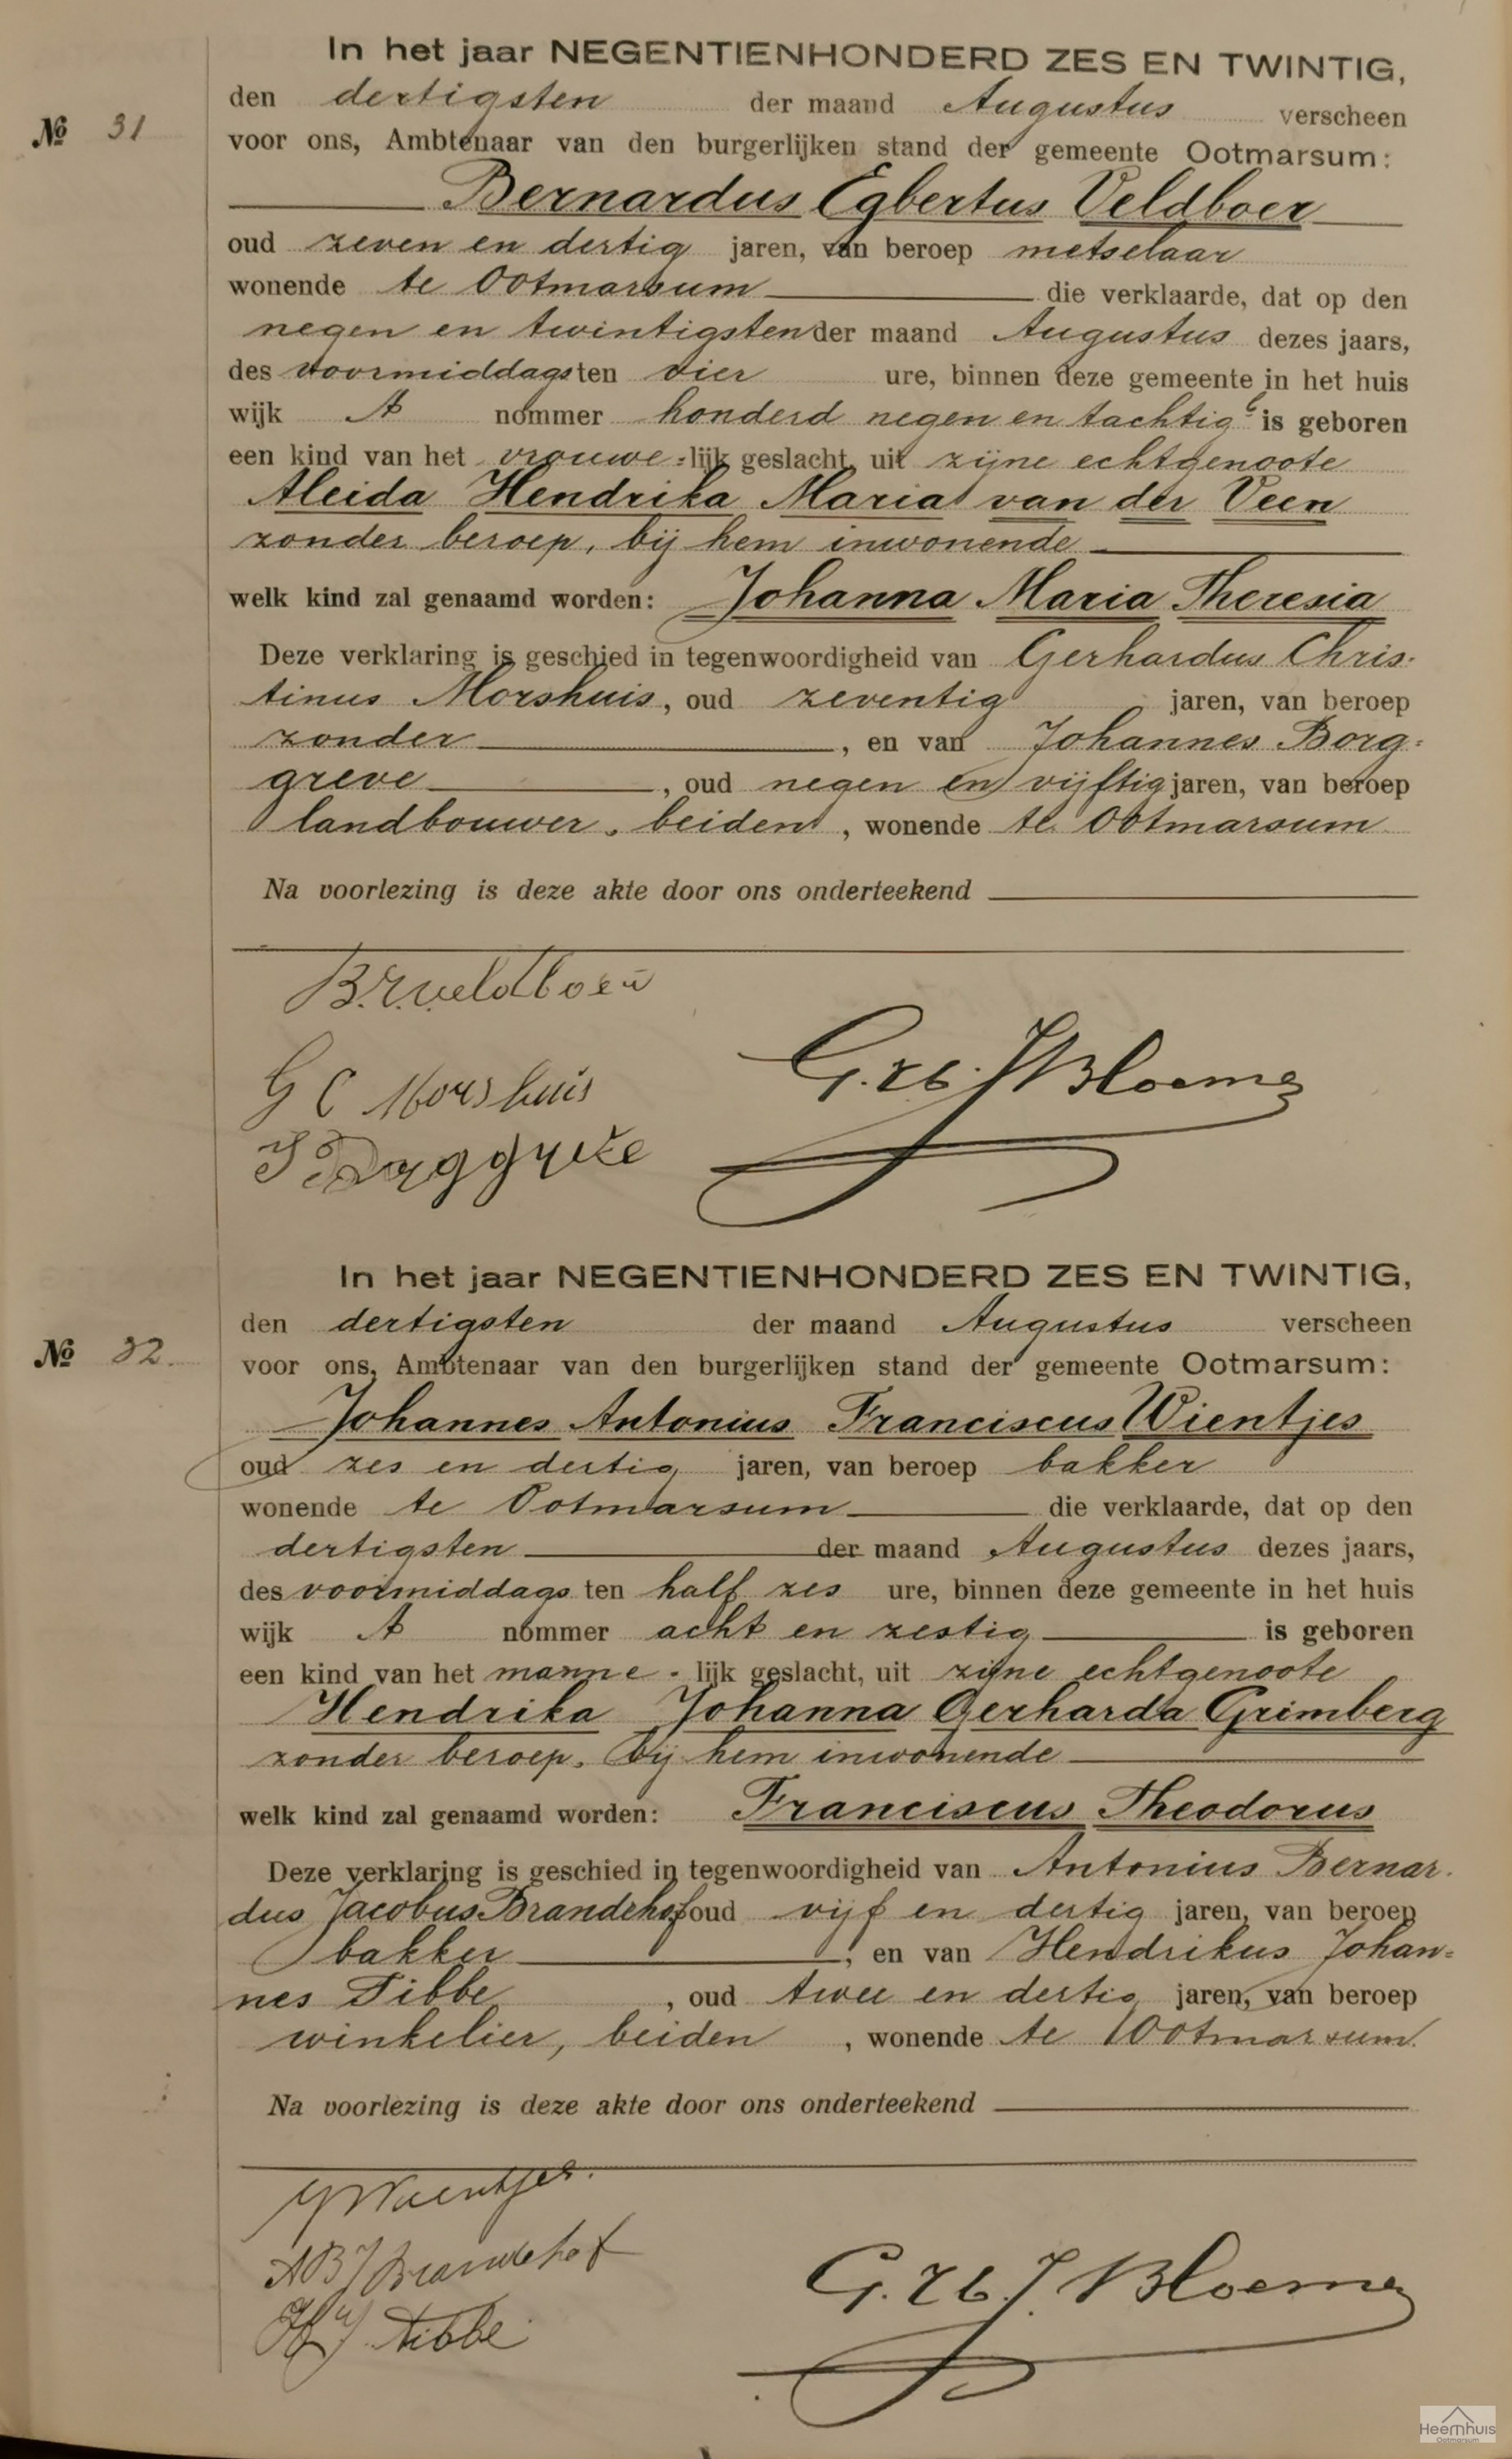 In het jaar NEGENTIENHONDERD ZES EN TWINTIG,
den dertigsten der maand Augustus verscheen
No 31
voor ons, Ambtenaar van den burgerlijken stand der gemeente Ootmarsum:
Bernardus Egbertus Veldboer
oud zeven en dertig jaren, van beroep metselaar
wonende te Ootmarsum die verklaarde, dat op den
negen en twintigsten der maand Augustus dezes jaars,
des voormiddags ten vier ure, binnen deze gemeente in het huis
wijk A nommer honderd negen en tachtig is geboren
een kind van het vrouwe-lijk geslacht, uit zijne echtgenoote
Aleida Hendrika Maria van der Veen
zonder beroep, bij hem inwonende
welk kind zal genaamd worden: Johanna Maria Theresia
Deze verklaring is geschied in tegenwoordigheid van Gerhardus Chris-
tinus Morshuis, oud zeventig jaren, van beroep
zonder, en van Johannes Borg=
greve, oud negen en vijftig jaren, van beroep
landbouwer, beiden, wonende te Ootmarsum
Na voorlezing is deze akte door ons onderteekend
Veldboer
G C Morshuis
J Borggreve
G. H. J. Bloemen
In het jaar NEGENTIENHONDERD ZES EN TWINTIG,
den dertigsten der maand Augustus verscheen
No 32.
voor ons, Ambtenaar van den burgerlijken stand der gemeente Ootmarsum:
Johannes Antonius Franciscus Wientjes
oud zes en dertig jaren, van beroep bakker
wonende te Ootmarsum die verklaarde, dat op den
dertigsten der maand Augustus dezes jaars,
des voormiddags ten half zes ure, binnen deze gemeente in het huis
wijk A nommer acht en zestig is geboren
een kind van het manne-lijk geslacht, uit zijne echtgenoote
Hendrika Johanna Gerharda Grimberg
zonder beroep, bij hem inwonende
welk kind zal genaamd worden: Franciscus Theodorus
Deze verklaring is geschied in tegenwoordigheid van Antonius Bernar-
dus Jacobus Brandehof oud vijf en dertig jaren, van beroep
bakker, en van Hendrikus Johan=
nes Tibbe, oud twee en dertig jaren, van beroep
winkelier, beiden, wonende te Ootmarsum.
Na voorlezing is deze akte door ons onderteekend
Wientjes.
A B J Brandehof
H J Tibbe
G. H. J. Bloemen
Heemhuis
Ootmarsum